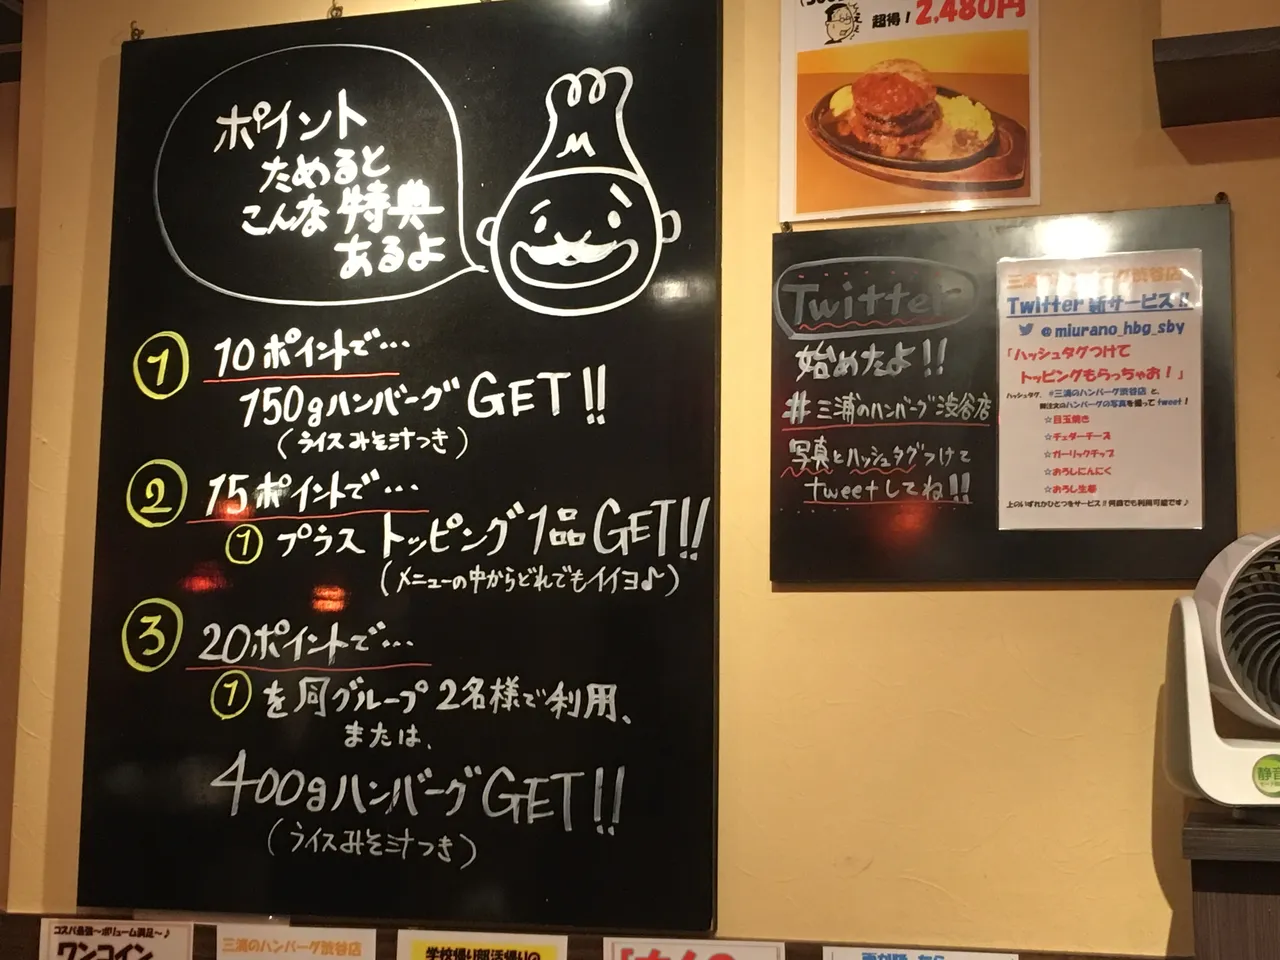 ポイント
ためると
こんな特典
あるよ
M
① 10ポイントで…
150gハンバーグGET!!
(ライスみそ汁つき)
② 15ポイントで…
①プラストッピング1品GET!!
(メニューの中からどれでもイイヨ♪)
③ 20ポイントで…
①を同グループ2名様で利用、
または、
400gハンバーグGET!!
(ライスみそ汁つき)
超得! 2,480円
Twitter
始めたよ!!
#三浦のハンバーグ渋谷店
写真とハッシュタグつけて
tweetしてね!!
三浦のハンバーグ渋谷店
Twitter新サービス!!
@miurano_hbg_sby
「ハッシュタグつけて
トッピングもらっちゃお!」
ハッシュタグ、#三浦のハンバーグ渋谷店 と、
御注文のハンバーグの写真を撮って tweet!
☆目玉焼き
☆チェダーチーズ
☆ガーリックチップ
☆おろしにんにく
☆おろし生姜
上のいずれかひとつをサービス!!何回でも利用可能です♪
静音
コスパ最強〜ボリューム満足〜♪
ワンコイン
三浦のハンバーグ渋谷店
学校帰り部活帰りの